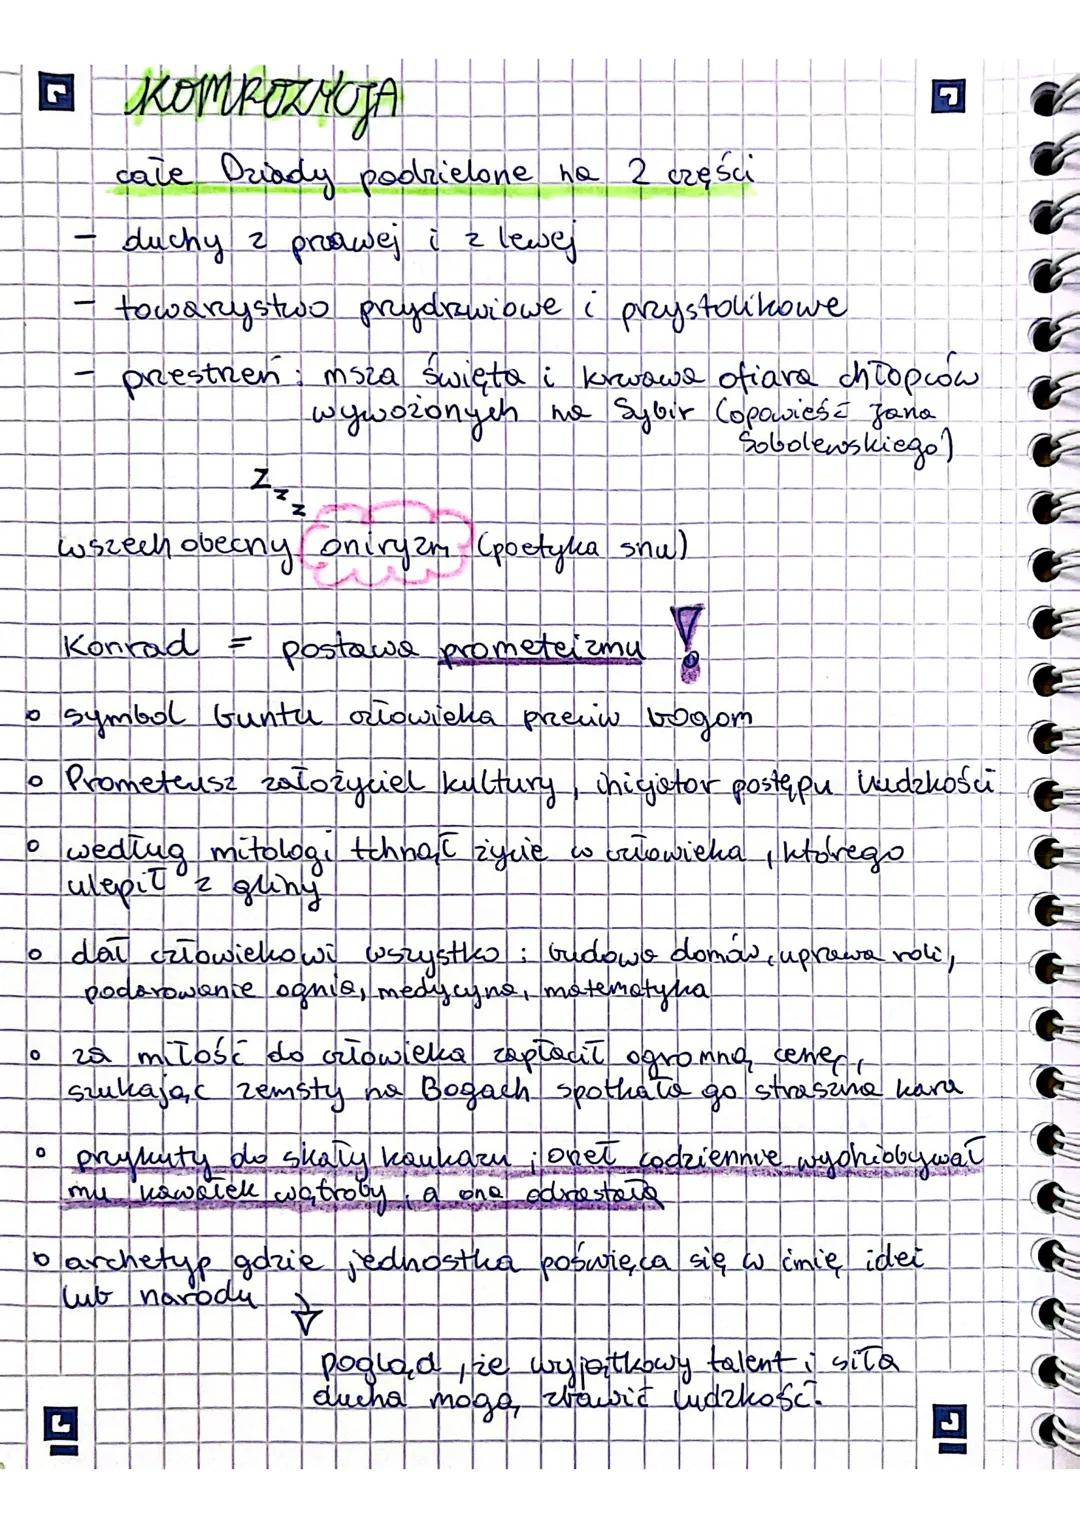 KOMPOZYCJA
całe Dziady podzielone na 2 części
- duchy z prawej i z lewej
- towarzystwo przydrzwiowe i przystolikowe
- przestrzeń : msza święta i krwawa ofiara chłopców
wywożonych na Sybir (opowieść Jana
Sobolewskiego)
z z z
wszechobecny oniryzm (poetyka snu)
Konrad = postawa prometeizmu !
o symbol buntu człowieka przeciw bogom
o Prometeusz założyciel kultury, inicjator postępu ludzkości
o według mitologi tchnął życie w człowieka, którego
ulepił z gliny
o dał człowiekowi wszystko : budowa domów, uprawa roli,
podarowanie ognia, medycyna, matematyka
o za miłość do człowieka zapłacił ogromną cenę,
szukając zemsty na Bogach spotkała go straszna kara
o przykuty do skały kaukazu ; orzeł codziennie wydziobywał
mu kawałek wątroby, a ona odrastała
o archetyp gdzie jednostka poświęca się w imię idei
lub narodu
pogląd, że wyjątkowy talent i siła
ducha mogą zbawić ludzkość.